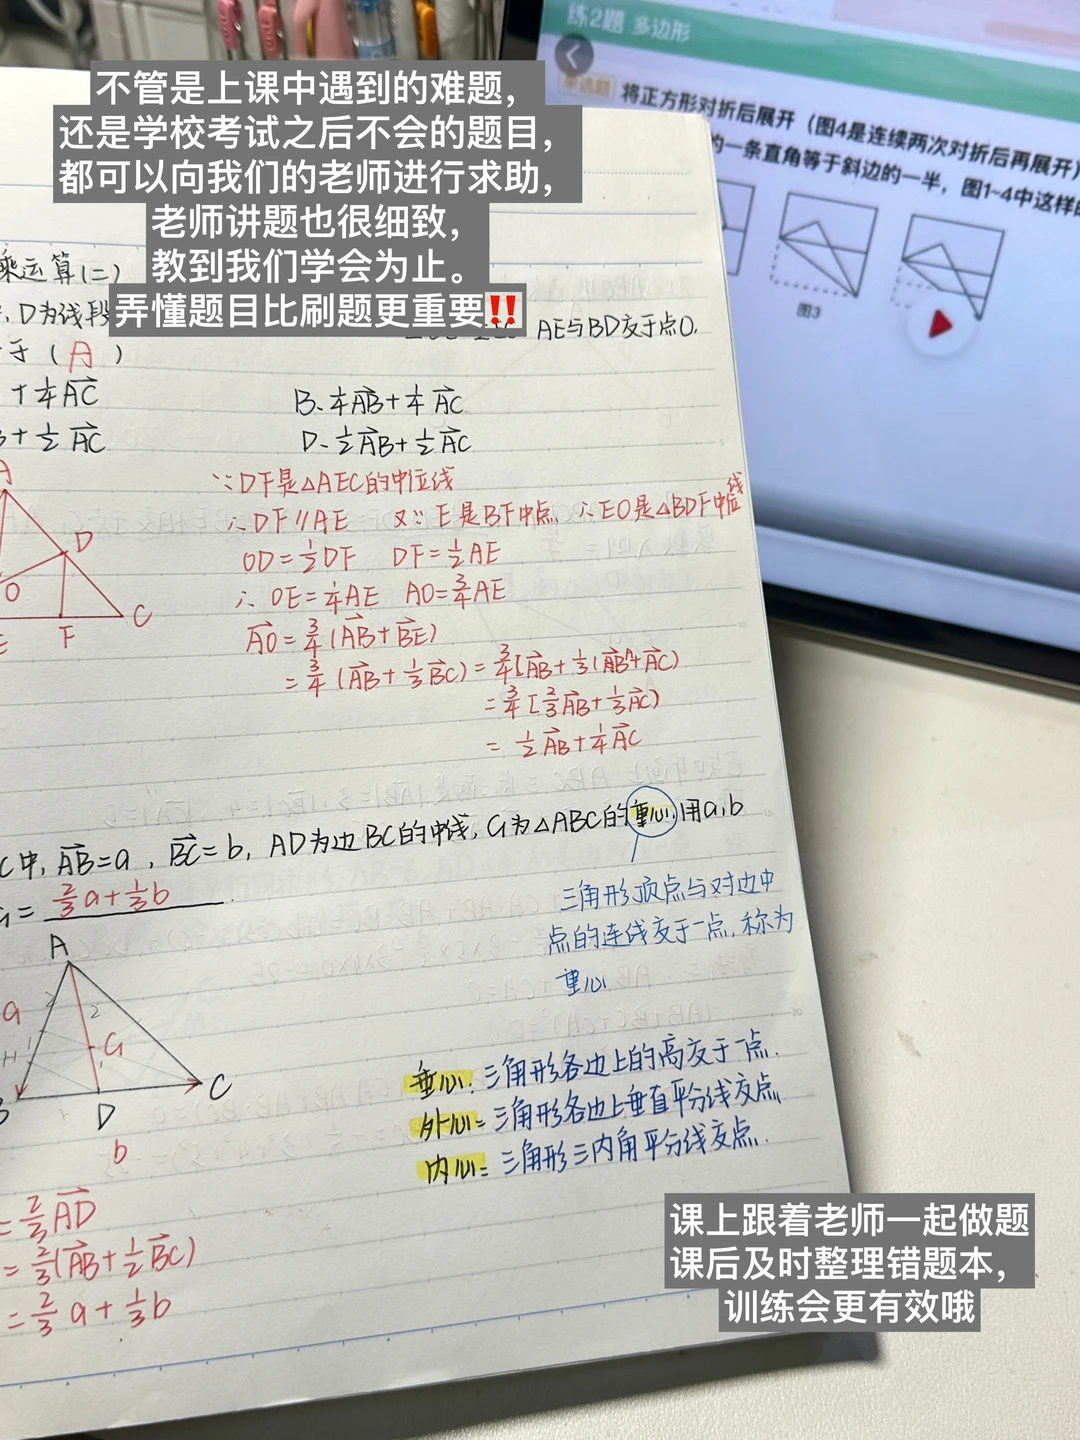 不管是上课中遇到的难题，
还是学校考试之后不会的题目，
都可以向我们的老师进行求助，
老师讲题也很细致，
教到我们学会为止。
弄懂题目比刷题更重要‼️
练2题 多边形
单选题 将正方形对折后展开（图4是连续两次对折后再展开）
的一条直角等于斜边的一半，图1-4中这样的
图3
乘运算(二)
D为线段
AE与BD交于点O.
于（A）
+¼AC
B. ¼AB+¼AC
+½AC
D. ½AB+½AC
A
D
O
C
E
F
∵DF是△AEC的中位线
∴DF∥AE 又∵E是BF中点 ∴EO是△BDF中位线
OD=½DF DF=½AE
∴OE=¼AE AO=¾AE
AO=¾(AB+BE)
=¾(AB+⅓BC)=¾[AB+⅓(AB+AC)
=¾[⅔AB+⅓AC)
=½AB+¼AC
C中, AB=a, BC=b, AD为边BC的中线, G为△ABC的重心,用a,b
=⅔a+⅓b.
三角形顶点与对边中
点的连线交于一点,称为
重心
A
a
2
G
H
1
B
D
C
b
垂心:三角形各边上的高交于一点.
外心=三角形各边上垂直平分线交点
内心=三角形三内角平分线交点.
=⅔AD
=⅔(AB+½BC)
=⅔a+⅓b
课上跟着老师一起做题
课后及时整理错题本，
训练会更有效哦